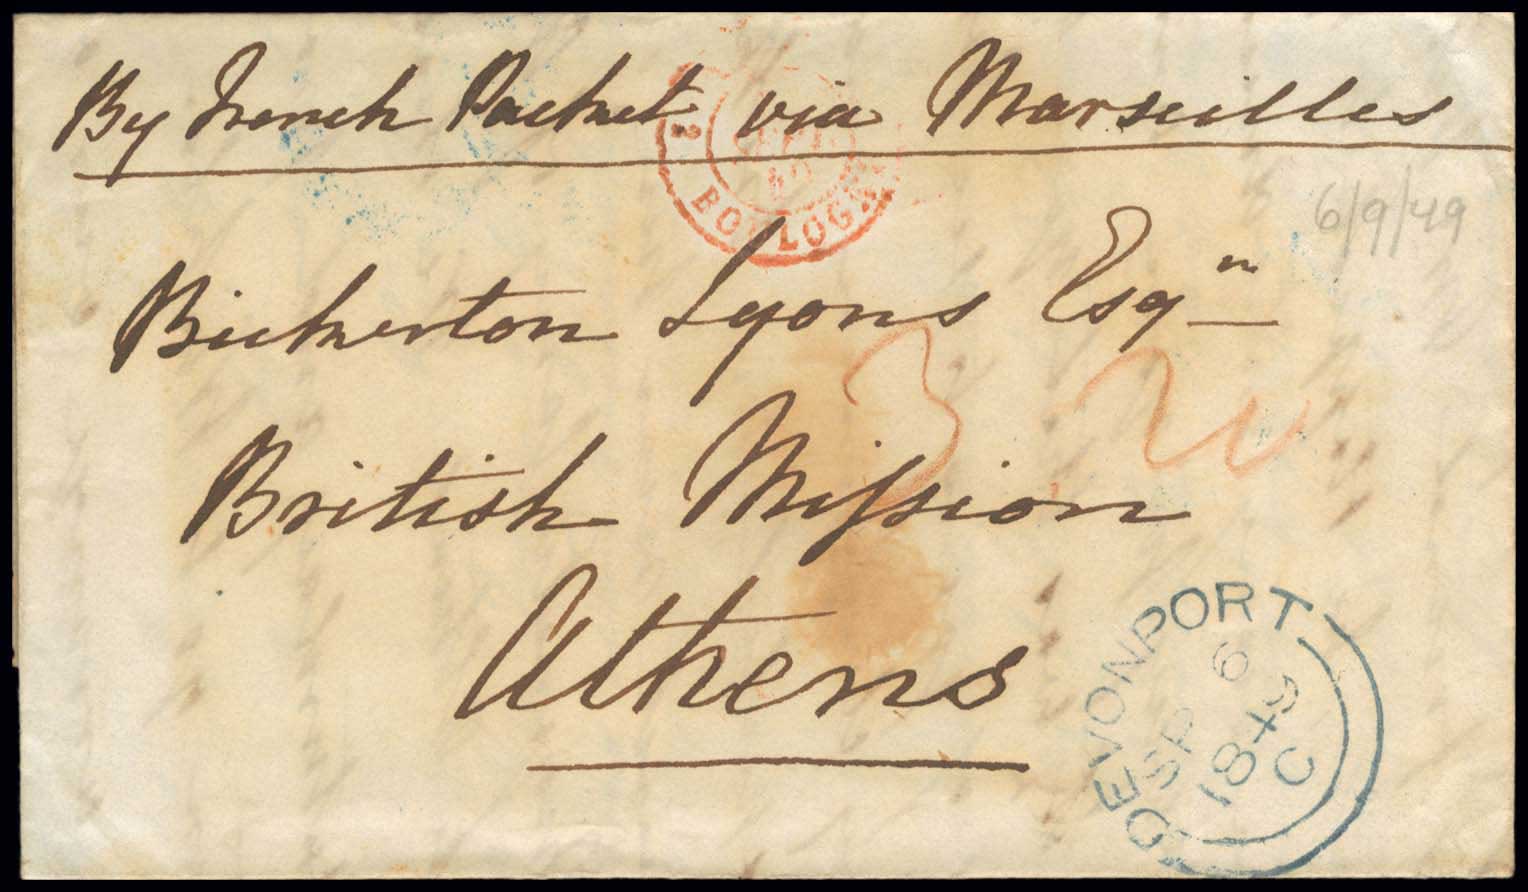 By French Packet via Marseilles
2
BOULOGNE
49
6/9/49
Bickerton Lyons Esqre
British Mission
Athens
DEVONPORT
6
SP 9
1849
C